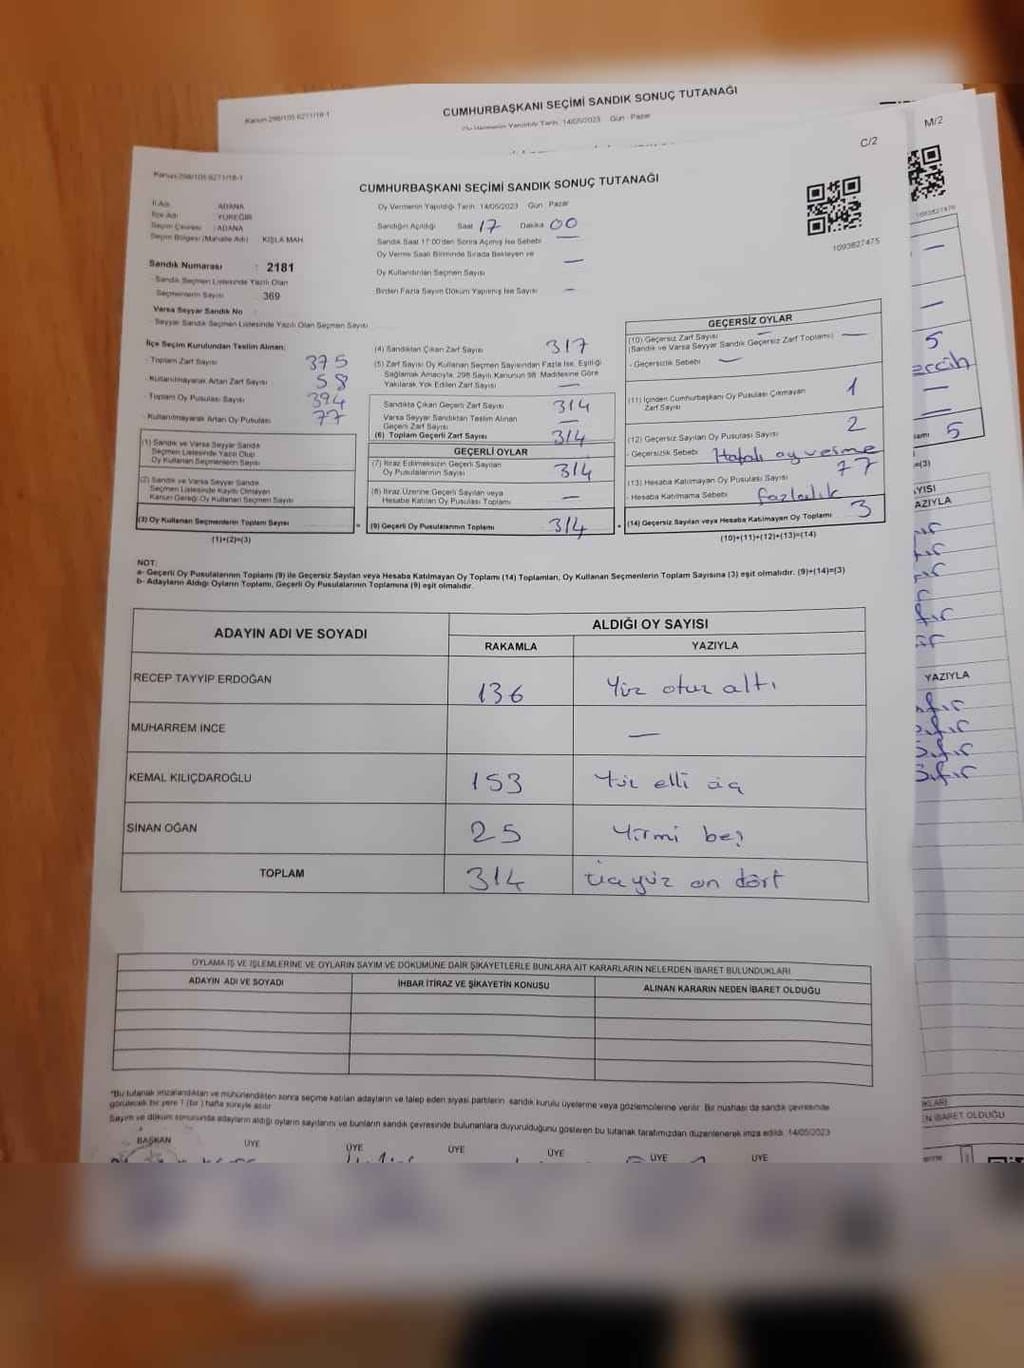 CUMHURBAŞKANI SEÇİMİ SANDIK SONUÇ TUTANAĞI
Oy Vermenin Yapıldığı Tarih: 14/05/2023 Gün: Pazar
M/2
1093827476
Kanun:298/105 6271/18-1
C/2
CUMHURBAŞKANI SEÇİMİ SANDIK SONUÇ TUTANAĞI
1093827475
İl Adı : ADANA
İlçe Adı : YÜREĞİR
Seçim Çevresi : ADANA
Seçim Bölgesi (Mahalle Adı) : KIŞLA MAH.
Sandık Numarası : 2181
Sandık Seçmen Listesinde Yazılı Olan
Seçmenlerin Sayısı : 369
Varsa Seyyar Sandık No :
Seyyar Sandık Seçmen Listesinde Yazılı Olan Seçmen Sayısı :
Oy Vermenin Yapıldığı Tarih: 14/05/2023 Gün: Pazar
Sandığın Açıldığı Saat 17 Dakika 00
Sandık Saat 17:00'den Sonra Açılmış İse Sebebi —
Oy Verme Saati Bitiminde Sırada Bekleyen ve —
Oy Kullandırılan Seçmen Sayısı
Birden Fazla Sayım Döküm Yapılmış İse Sayısı —
İlçe Seçim Kurulundan Teslim Alınan:
- Toplam Zarf Sayısı 375
- Kullanılmayarak Artan Zarf Sayısı 58
- Toplam Oy Pusulası Sayısı 394
- Kullanılmayarak Artan Oy Pusulası 77
(1) Sandık ve Varsa Seyyar Sandık
Seçmen Listesinde Yazılı Olup
Oy Kullanan Seçmenlerin Sayısı
(2) Sandık ve Varsa Seyyar Sandık
Seçmen Listesinde Kayıtlı Olmayan
Kanun Gereği Oy Kullanan Seçmen Sayısı
(3) Oy Kullanan Seçmenlerin Toplam Sayısı
(1)+(2)=(3)
(4) Sandıktan Çıkan Zarf Sayısı 317
(5) Zarf Sayısı Oy Kullanan Seçmen Sayısından Fazla İse, Eşitliği
Sağlamak Amacıyla, 298 Sayılı Kanunun 98. Maddesine Göre
Yakılarak Yok Edilen Zarf Sayısı —
Sandıkta Çıkan Geçerli Zarf Sayısı 314
Varsa Seyyar Sandıktan Teslim Alınan
Geçerli Zarf Sayısı —
(6) Toplam Geçerli Zarf Sayısı 314
GEÇERLİ OYLAR
(7) İtiraz Edilmeksizin Geçerli Sayılan
Oy Pusulalarının Sayısı 314
(8) İtiraz Üzerine Geçerli Sayılan veya
Hesaba Katılan Oy Pusulası Toplamı —
= (9) Geçerli Oy Pusulalarının Toplamı 314
GEÇERSİZ OYLAR
(10) Geçersiz Zarf Sayısı —
(Sandık ve Varsa Seyyar Sandık Geçersiz Zarf Toplamı) —
- Geçersizlik Sebebi —
(11) İçinden Cumhurbaşkanı Oy Pusulası Çıkmayan 1
Zarf Sayısı
(12) Geçersiz Sayılan Oy Pusulası Sayısı 2
- Geçersizlik Sebebi Hatalı oy verme
(13) Hesaba Katılmayan Oy Pusulası Sayısı 77
- Hesaba Katılmama Sebebi fazlalık
+ (14) Geçersiz Sayılan veya Hesaba Katılmayan Oy Toplamı 3
(10)+(11)+(12)+(13)=(14)
NOT:
a- Geçerli Oy Pusulalarının Toplamı (9) ile Geçersiz Sayılan veya Hesaba Katılmayan Oy Toplamı (14) Toplamları, Oy Kullanan Seçmenlerin Toplam Sayısına (3) eşit olmalıdır. (9)+(14)=(3)
b- Adayların Aldığı Oyların Toplamı, Geçerli Oy Pusulalarının Toplamına (9) eşit olmalıdır.
ADAYIN ADI VE SOYADI ALDIĞI OY SAYISI
RAKAMLA YAZIYLA
RECEP TAYYİP ERDOĞAN 136 Yüz otuz altı
MUHARREM İNCE —
KEMAL KILIÇDAROĞLU 153 Yüz elli üç
SİNAN OĞAN 25 Yirmi beş
TOPLAM 314 Üçyüz on dört
OYLAMA İŞ VE İŞLEMLERİNE VE OYLARIN SAYIM VE DÖKÜMÜNE DAİR ŞİKAYETLERLE BUNLARA AİT KARARLARIN NELERDEN İBARET BULUNDUKLARI
ADAYIN ADI VE SOYADI İHBAR İTİRAZ VE ŞİKAYETİN KONUSU ALINAN KARARIN NEDEN İBARET OLDUĞU
*Bu tutanak imzalandıktan ve mühürlendikten sonra seçime katılan adayların ve talep eden siyasi partilerin sandık kurulu üyelerine veya gözlemcilerine verilir. Bir nüshası da sandık çevresinde
görülecek bir yere 1 (bir) hafta süreyle asılır.
Sayım ve döküm sonucunda adayların aldığı oyların sayılarını ve bunların sandık çevresinde bulunanlara duyurulduğunu gösteren bu tutanak tarafımızdan düzenlenerek imza edildi. 14/05/2023
BAŞKAN ÜYE ÜYE ÜYE ÜYE ÜYE ÜYE
—
—
5
—
—
5
=(3)
YAZIYLA
YAZIYLA
sıfır
sıfır
sıfır
EN İBARET OLDUĞU